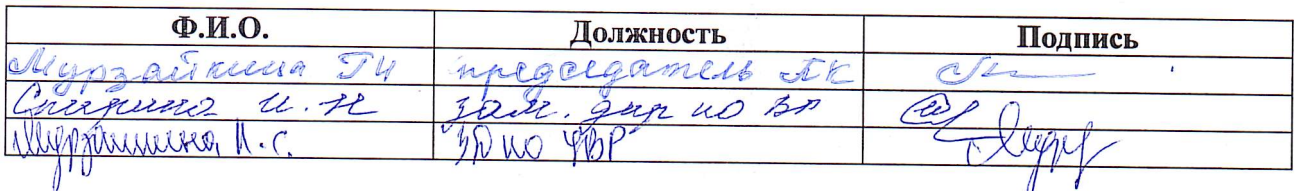 Ф.И.О. Должность Подпись
Мурзайкина ГН председатель ПК
Спирина И.Н зам. дир по ВР
Мурзашкина Н.С. ЗД по УВР